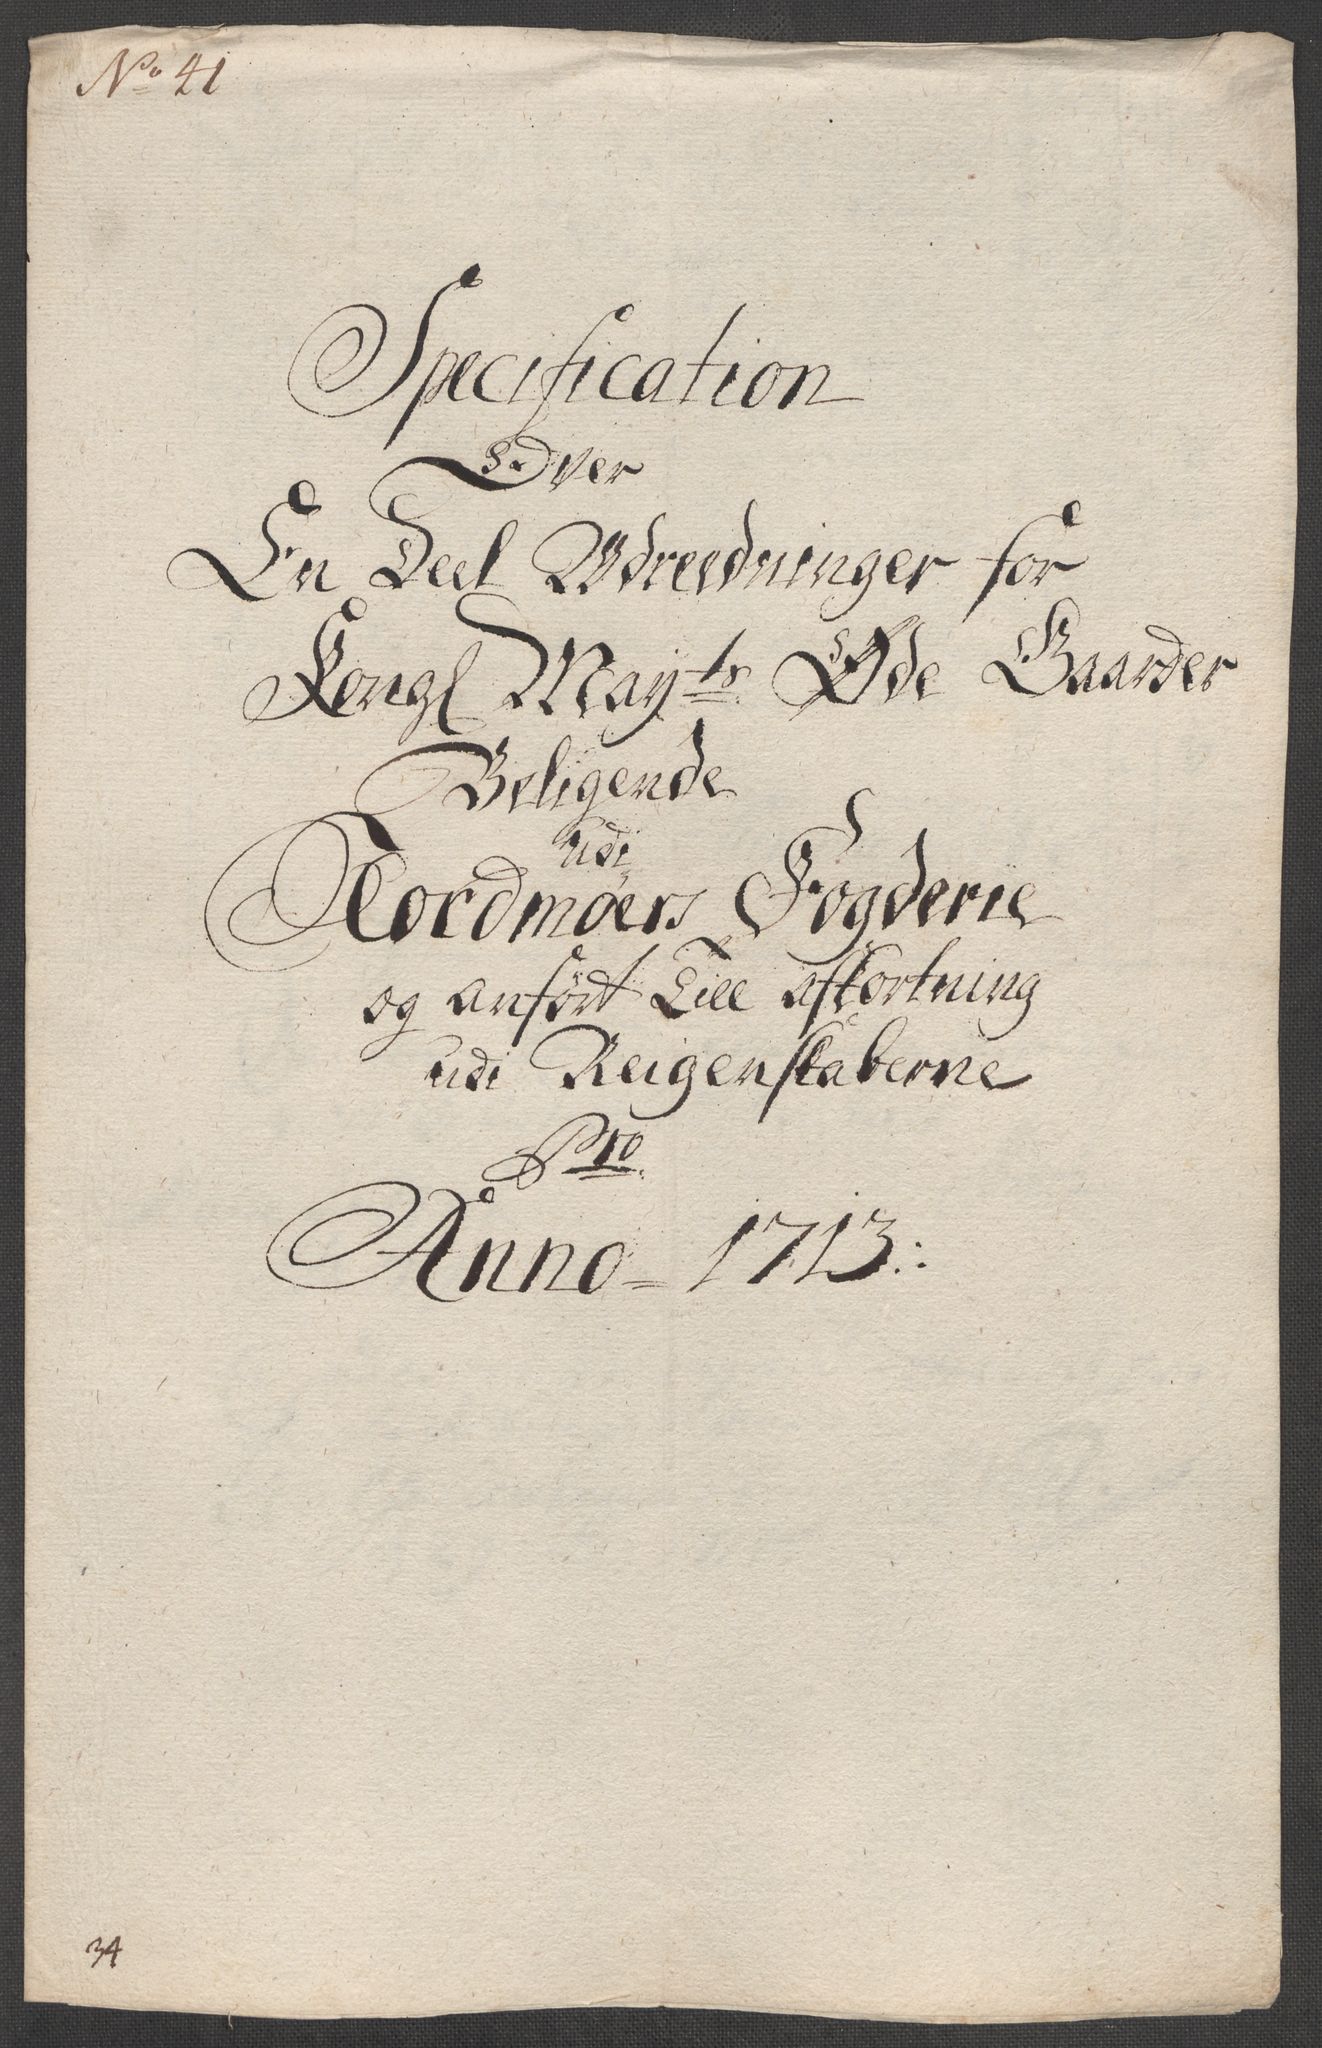 No 41
Specification
Over
En Deel Udreedninger for
Kongl Mayts Øde Gaarder
Beligende
udi
Nordmøers Fogderie
og anført Till afkortning
udi Reigenskaberne
Pro
Anno = 1713
34